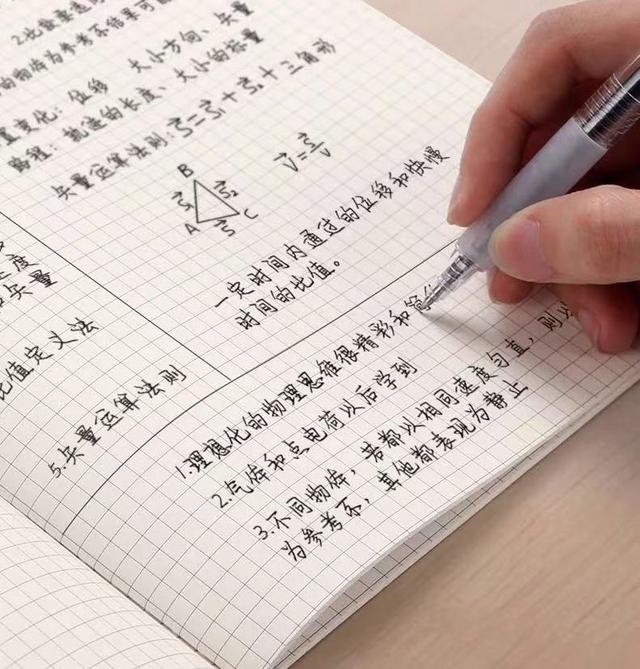 2.比
的物体为参考不结果可
置变化：位移 大小方向、矢量
路程：轨迹的长度、大小的标量
矢量运算法则：S=S₁+S₂+三角形
B
S₁ S₂
A S C
V=S/V
一定时间内通过的位移和快慢
时间的比值。
度
矢量
比值定义法
5.矢量运算法则
1.理想化的物理思维很精彩和简
2.气体和点电荷以后学到
3.不同物体，若都以相同速度匀直，则以
为参考不，其他都表现为静止